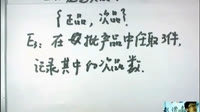 {正品,次品}
E₃:在一批产品中任取3件,
记录其中的次品数.